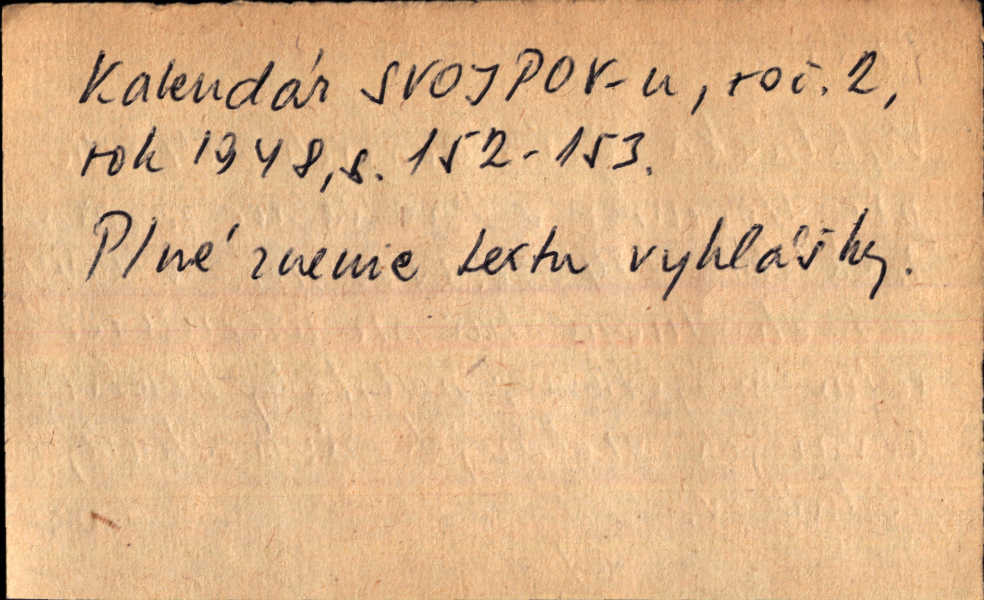 Kalendár SVOJPOV-u, roč. 2,
rok 1948, s. 152-153.
Plné znenie textu vyhlášky.